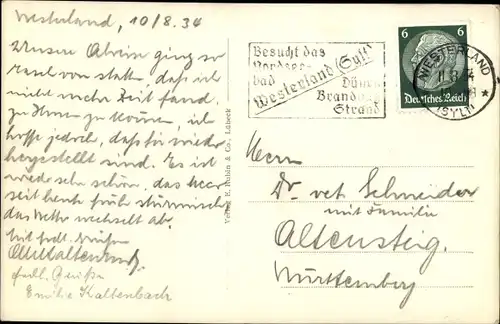 Westerland, 10/8.34
Unsere Abreise ging so
rasch von statten, daß ich
nicht mehr Zeit fand,
zu Ihnen zu kommen, ich
hoffe jedoch, daß Sie wieder
hergestellt sind. Es ist
wieder sehr schön, das Meer
seit heute früh stürmisch
das Wetter wechselt ab.
Mit frdl. Grüßen
Kaltenbach
frdl. Grüße
Emilie Kaltenbach
Verlag E. Rubin & Co., Lübeck
Besucht das
Nordsee-
bad
Westerland (Sylt)
Dünen
Brandg.
Strand
6 6
Deutsches Reich
WESTERLAND
11.8.34
(SYLT)
Herrn
Dr. vet. Schneider
mit Familie
Altensteig.
Württemberg